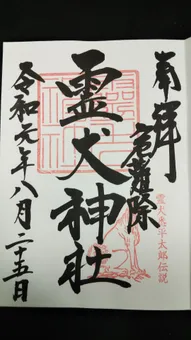 奉拝
難除
霊犬神社
令和元年八月二十五日
霊犬悉平太郎伝説